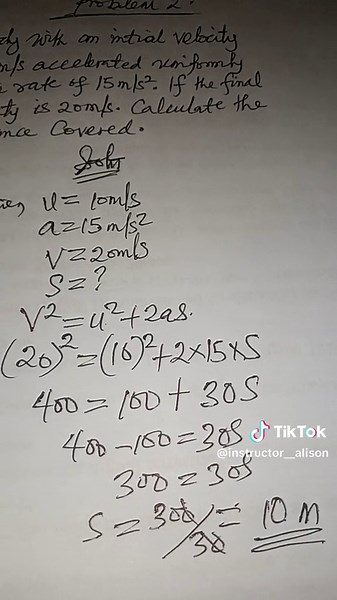 Problem 2
dy with an initial velocity
m/s accelerated uniformly
rate of 15m/s². If the final
ty is 20m/s. Calculate the
nce Covered.
Soln
u = 10m/s
a = 15m/s²
V = 20m/s
S = ?
V² = u² + 2as.
(20)² = (10)² + 2×15×S
400 = 100 + 30S
400 - 100 = 30S
300 = 30S
S = 300/30 = 10 M
TikTok
@instructor__alison